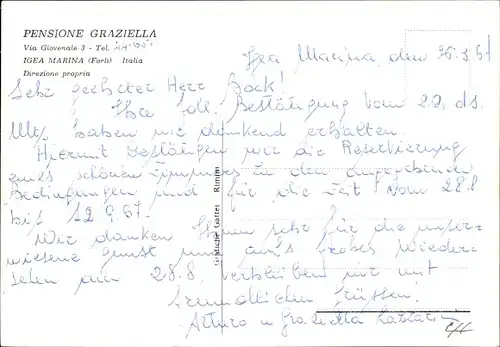 PENSIONE GRAZIELLA
Via Giovenale 3 - Tel.
IGEA MARINA (Forlì) Italia
Direzione propria
Igea Marina, den 26.3.67
Sehr geehrter Herr Bock!
Ihre Bestätigung vom 22. ds.
haben wir dankend erhalten.
Hiermit bestätigen wir die Reservierung
eines schönen Zimmers zu den angegebenen
Bedingungen und für die Zeit vom 28.8
bis 12.9.67.
Wir danken Ihnen sehr für die uns er-
wiesene Gunst und auf's frohes Wieder-
sehen am 28.8. verbleiben wir mit
freundlichen Grüssen!
Arturo u Graziella
Grafiche Gattei Rimini